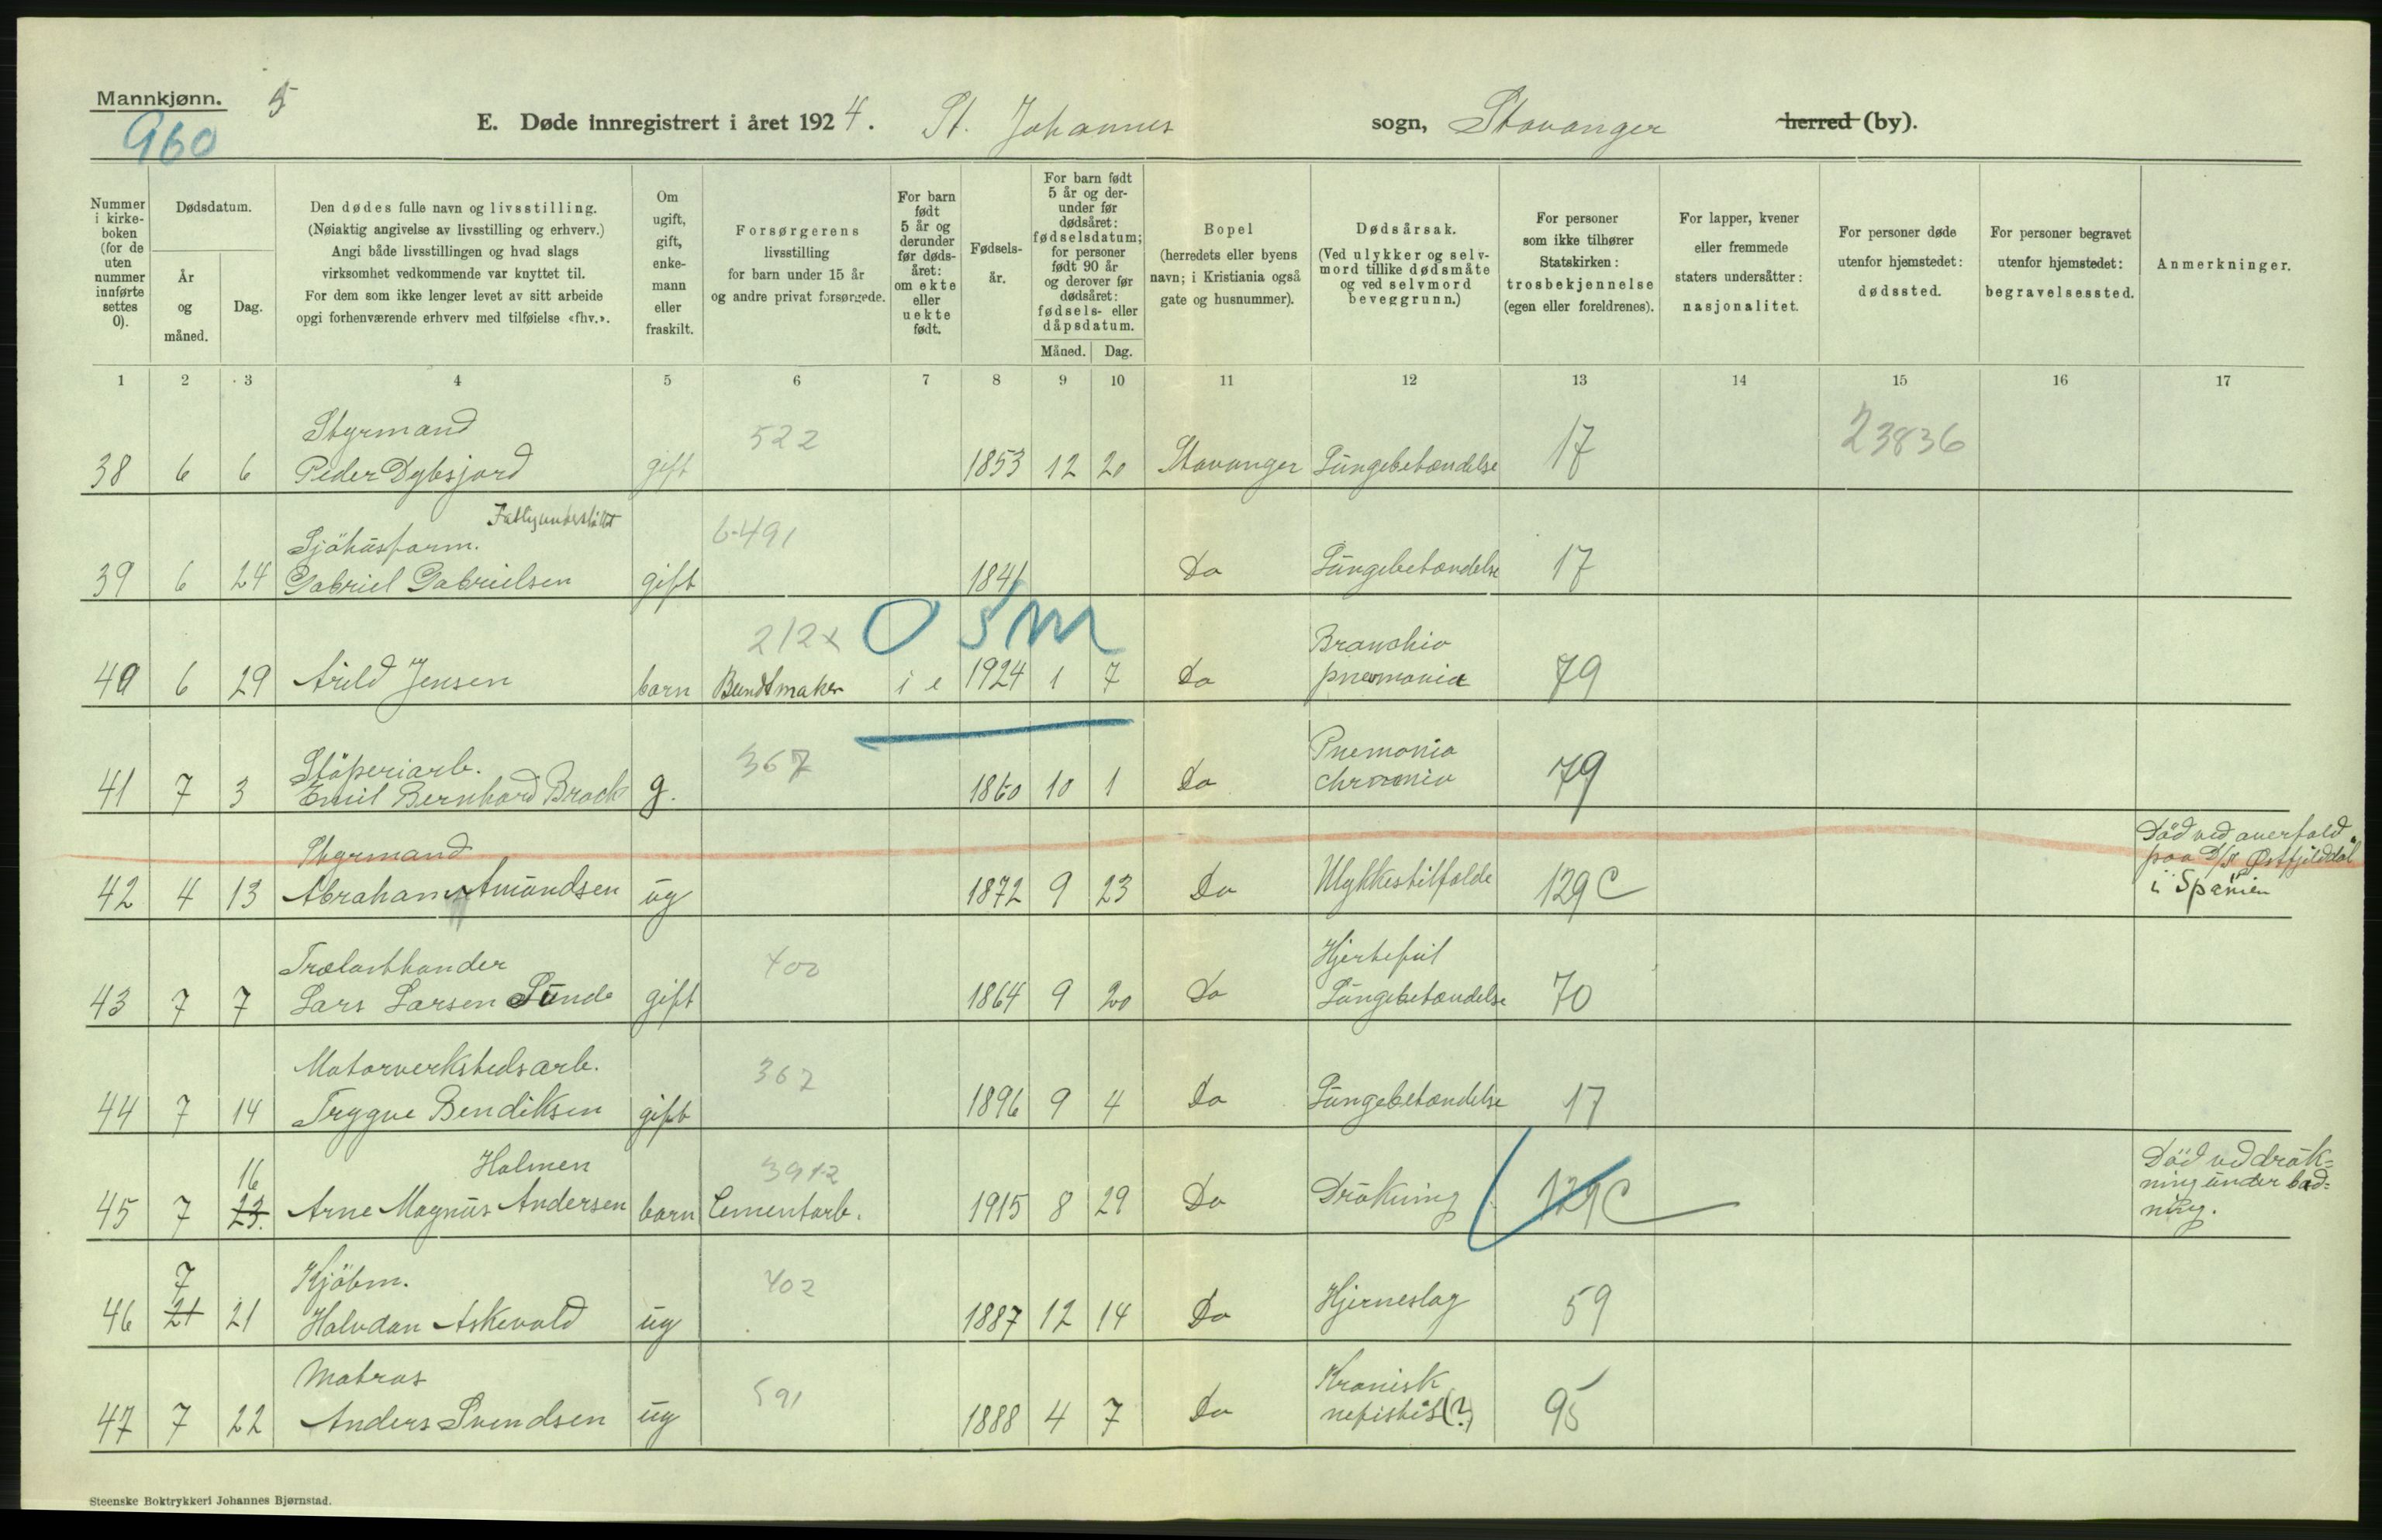 Mannkjønn. 5
960
E. Døde innregistrert i året 1924. St. Johannes sogn, Stavanger herred (by).
Nummer i kirkeboken (for de uten nummer innførte settes 0).
Dødsdatum.
År og måned.
Dag.
Den dødes fulle navn og livsstilling.
(Nøiaktig angivelse av livsstilling og erhverv.)
Angi både livsstillingen og hvad slags
virksomhet vedkommende var knyttet til.
For dem som ikke lenger levet av sitt arbeide
opgi forhenværende erhverv med tilføielse «fhv.».
Om ugift, gift, enkemann eller fraskilt.
Forsørgerens
livsstilling
for barn under 15 år
og andre privat forsørgede.
For barn født 5 år og derunder før dødsåret: om ekte eller uekte født.
Fødselsår.
For barn født 5 år og derunder før dødsåret: fødselsdatum; for personer født 90 år og derover før dødsåret: fødsels- eller dåpsdatum.
Måned. Dag.
Bopel
(herredets eller byens
navn; i Kristiania også
gate og husnummer).
Dødsårsak.
(Ved ulykker og selvmord tillike dødsmåte og ved selvmord beveggrunn.)
For personer
som ikke tilhører
Statskirken:
trosbekjennelse
(egen eller foreldrenes).
For lapper, kvener
eller fremmede
staters undersåtter:
nasjonalitet.
For personer døde
utenfor hjemstedet:
dødssted.
For personer begravet
utenfor hjemstedet:
begravelsessted.
Anmerkninger.
1 2 3 4 5 6 7 8 9 10 11 12 13 14 15 16 17
Styrmand 522 23836
38 6 6 Peder Dybsjord gift 1853 12 20 Stavanger Lungebetændelse 17
Fattigunderstøttet
Sjöhusform. 6-491
39 6 24 Gabriel Gabrielsen gift 1841 Do Lungebetændelse 17
212x O 5 M Bronchio
40 6 29 Arild Jensen barn Bundtmaker i e 1924 1 7 Do pnemonia 79
Stöperiarb. 367 Pnemonia
41 7 3 Emil Bernhard Brock g. 1860 10 1 Do chronnia 79
Styrmand Död ved overfald
paa D/S Østfjelddal
42 4 13 Abraham Amundsen ug 1872 9 23 Do Ulykkestilfælde 129 C i Spanien
Trælasthander 400 Hjertefeil
43 7 7 Lars Larsen Sunde gift 1864 9 20 Do Lungebetændelse 70
Motorverkstedsarb. 367
44 7 14 Trygve Bendiksen gift 1896 9 4 Do Lungebetændelse 17
16 Holmen 3912 Död ved druk=
ning under bad=
45 7 23. Arne Magnus Andersen barn Cementarb. 1915 8 29 Do Drukning 129 C ning.
7 Kjöbm. 402
46 21 21 Halvdan Askevold ug 1887 12 14 Do Hjerneslag 59
Matros 591 Kronisk
47 7 22 Anders Svendsen ug 1888 4 7 Do nefistis(?) 95
Steenske Boktrykkeri Johannes Bjørnstad.